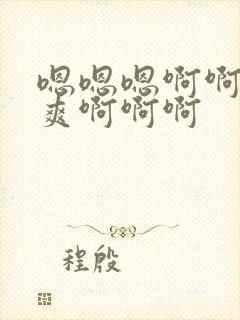 嗯嗯嗯啊啊
爽啊啊啊
程殷